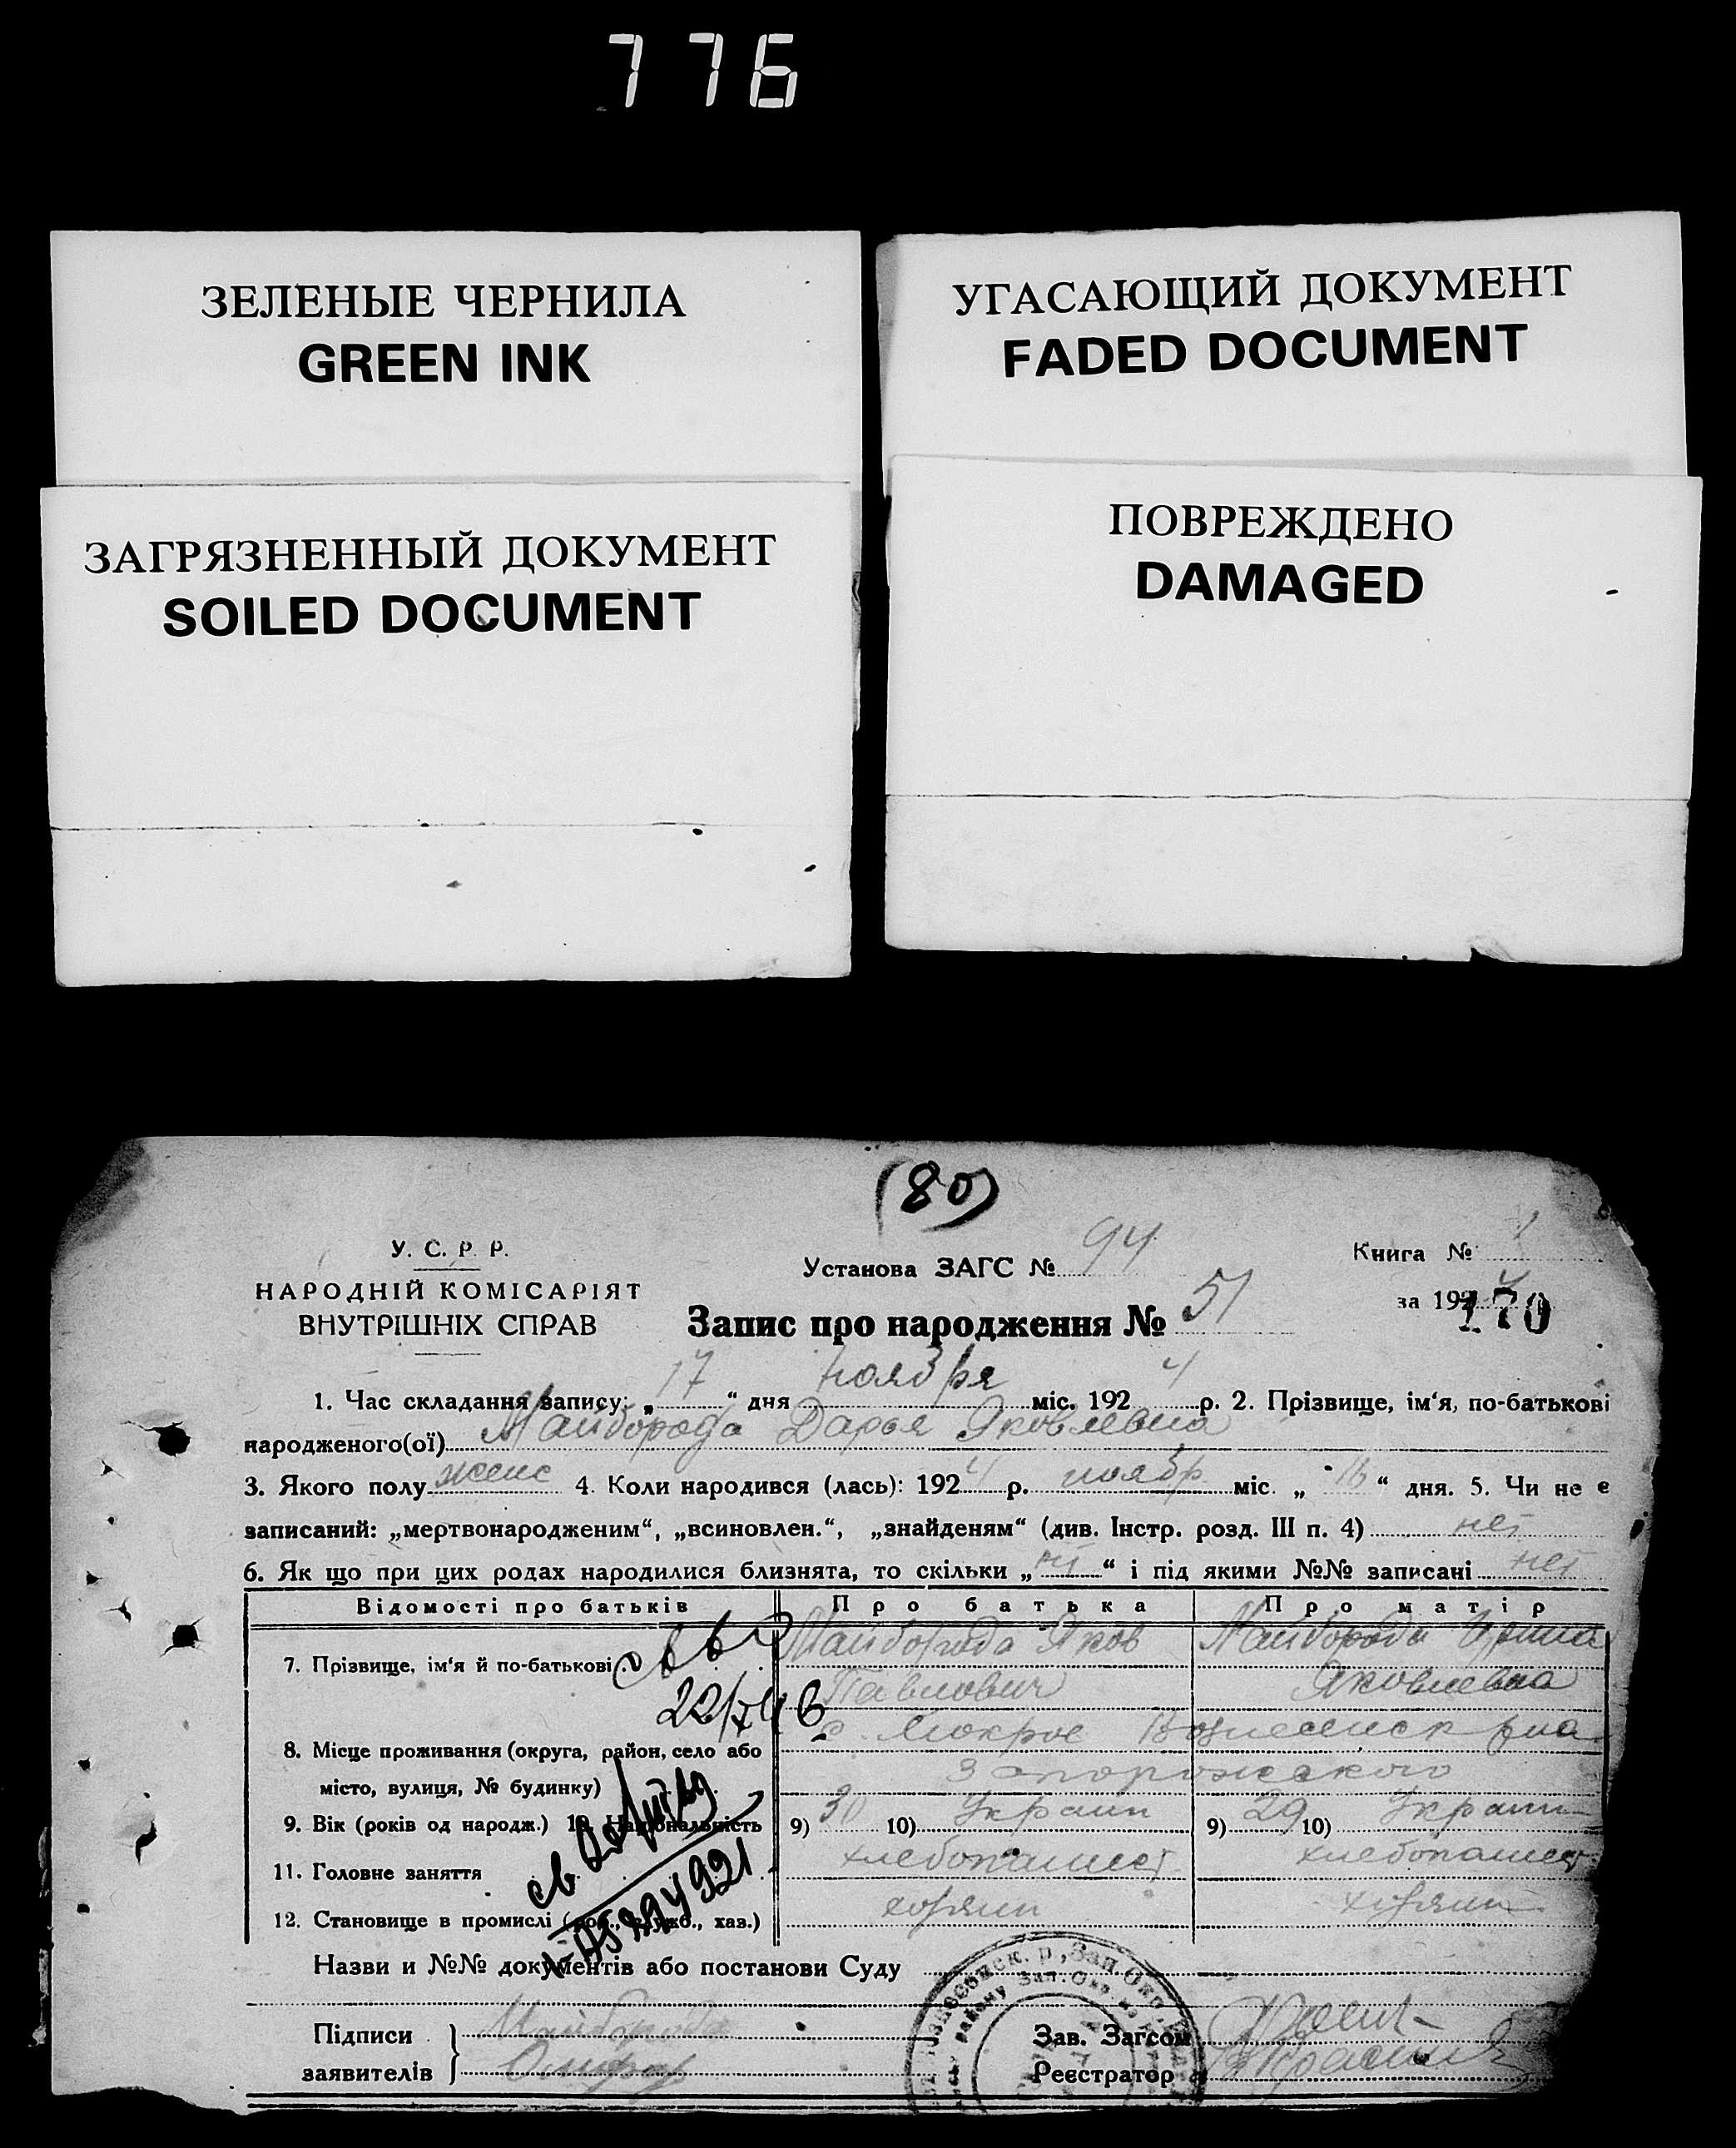 776
ЗЕЛЕНЫЕ ЧЕРНИЛА
GREEN INK
УГАСАЮЩИЙ ДОКУМЕНТ
FADED DOCUMENT
ЗАГРЯЗНЕННЫЙ ДОКУМЕНТ
SOILED DOCUMENT
ПОВРЕЖДЕНО
DAMAGED
(80)
У. С. Р. Р.
НАРОДНІЙ КОМІСАРІЯТ
ВНУТРІШНІХ СПРАВ
Установа ЗАГС № 94
Запис про народження № 51
Книга № 1
за 1924
170
1. Час складання запису: „17“ дня ноября міс. 1924 р. 2. Прізвище, ім'я, по-батькові
народженого(ої) Майборода Дарья Яковлевна
3. Якого полу женс 4. Коли народився (лась): 1924 р. ноябр міс. „16“ дня. 5. Чи не є
записаний: „мертвонародженим“, „всиновлен.“, „знайденям“ (див. Інстр. розд. III п. 4) нет
6. Як що при цих родах народилися близнята, то скільки „нт“ і під якими №№ записані нет
Відомості про батьків Про батька Про матір
7. Прізвище, ім'я й по-батькові Майборода Яков Майборода Ирина
Павлович Яковлевна
8. Місце проживання (округа, район, село або с. Мокрое Вознесенск рна
місто, вулиця, № будинку) Запорожского
9. Вік (років од народж.) 10. Національність 9) 30 10) Украин 9) 29 10) Украин
11. Головне заняття хлебопашест хлебопашест
12. Становище в промислі (роб., служб., хаз.) хозяин хозяин
Назви и №№ документів або постанови Суду
Підписи Майборода Зав. Загсом
заявителів Реєстратор